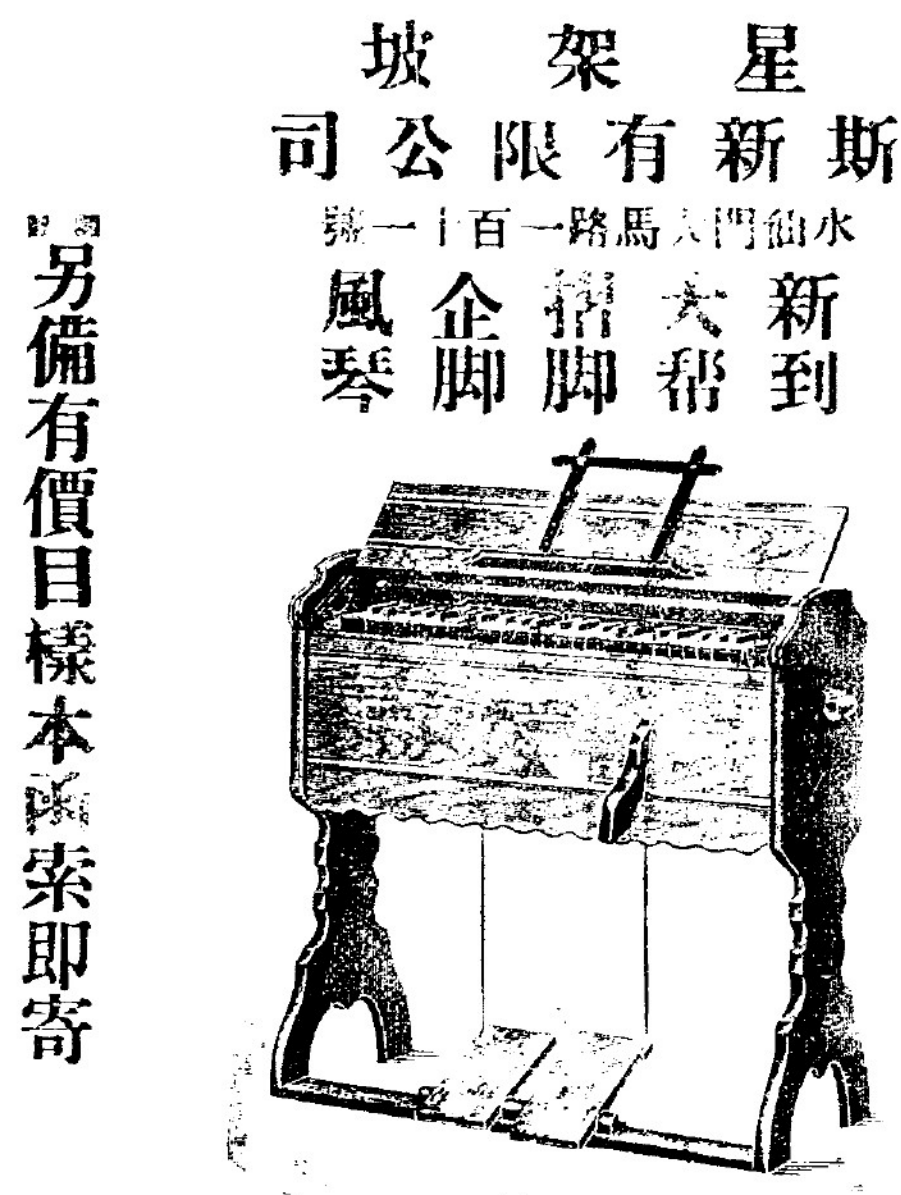 星架坡
斯新有限公司
水仙門大馬路一百十一號
新到
大帮
摺脚
企脚
風琴
另備有價目樣本函索即寄